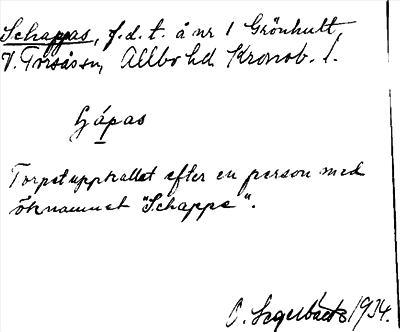 Schappas, f.d.t. å nr 1 Grönhult,
V. Torsås sn, Allbo hd Kronob. l.
Torpet uppkallat efter en person med
öknamnet "Schappe".
O. 1934.